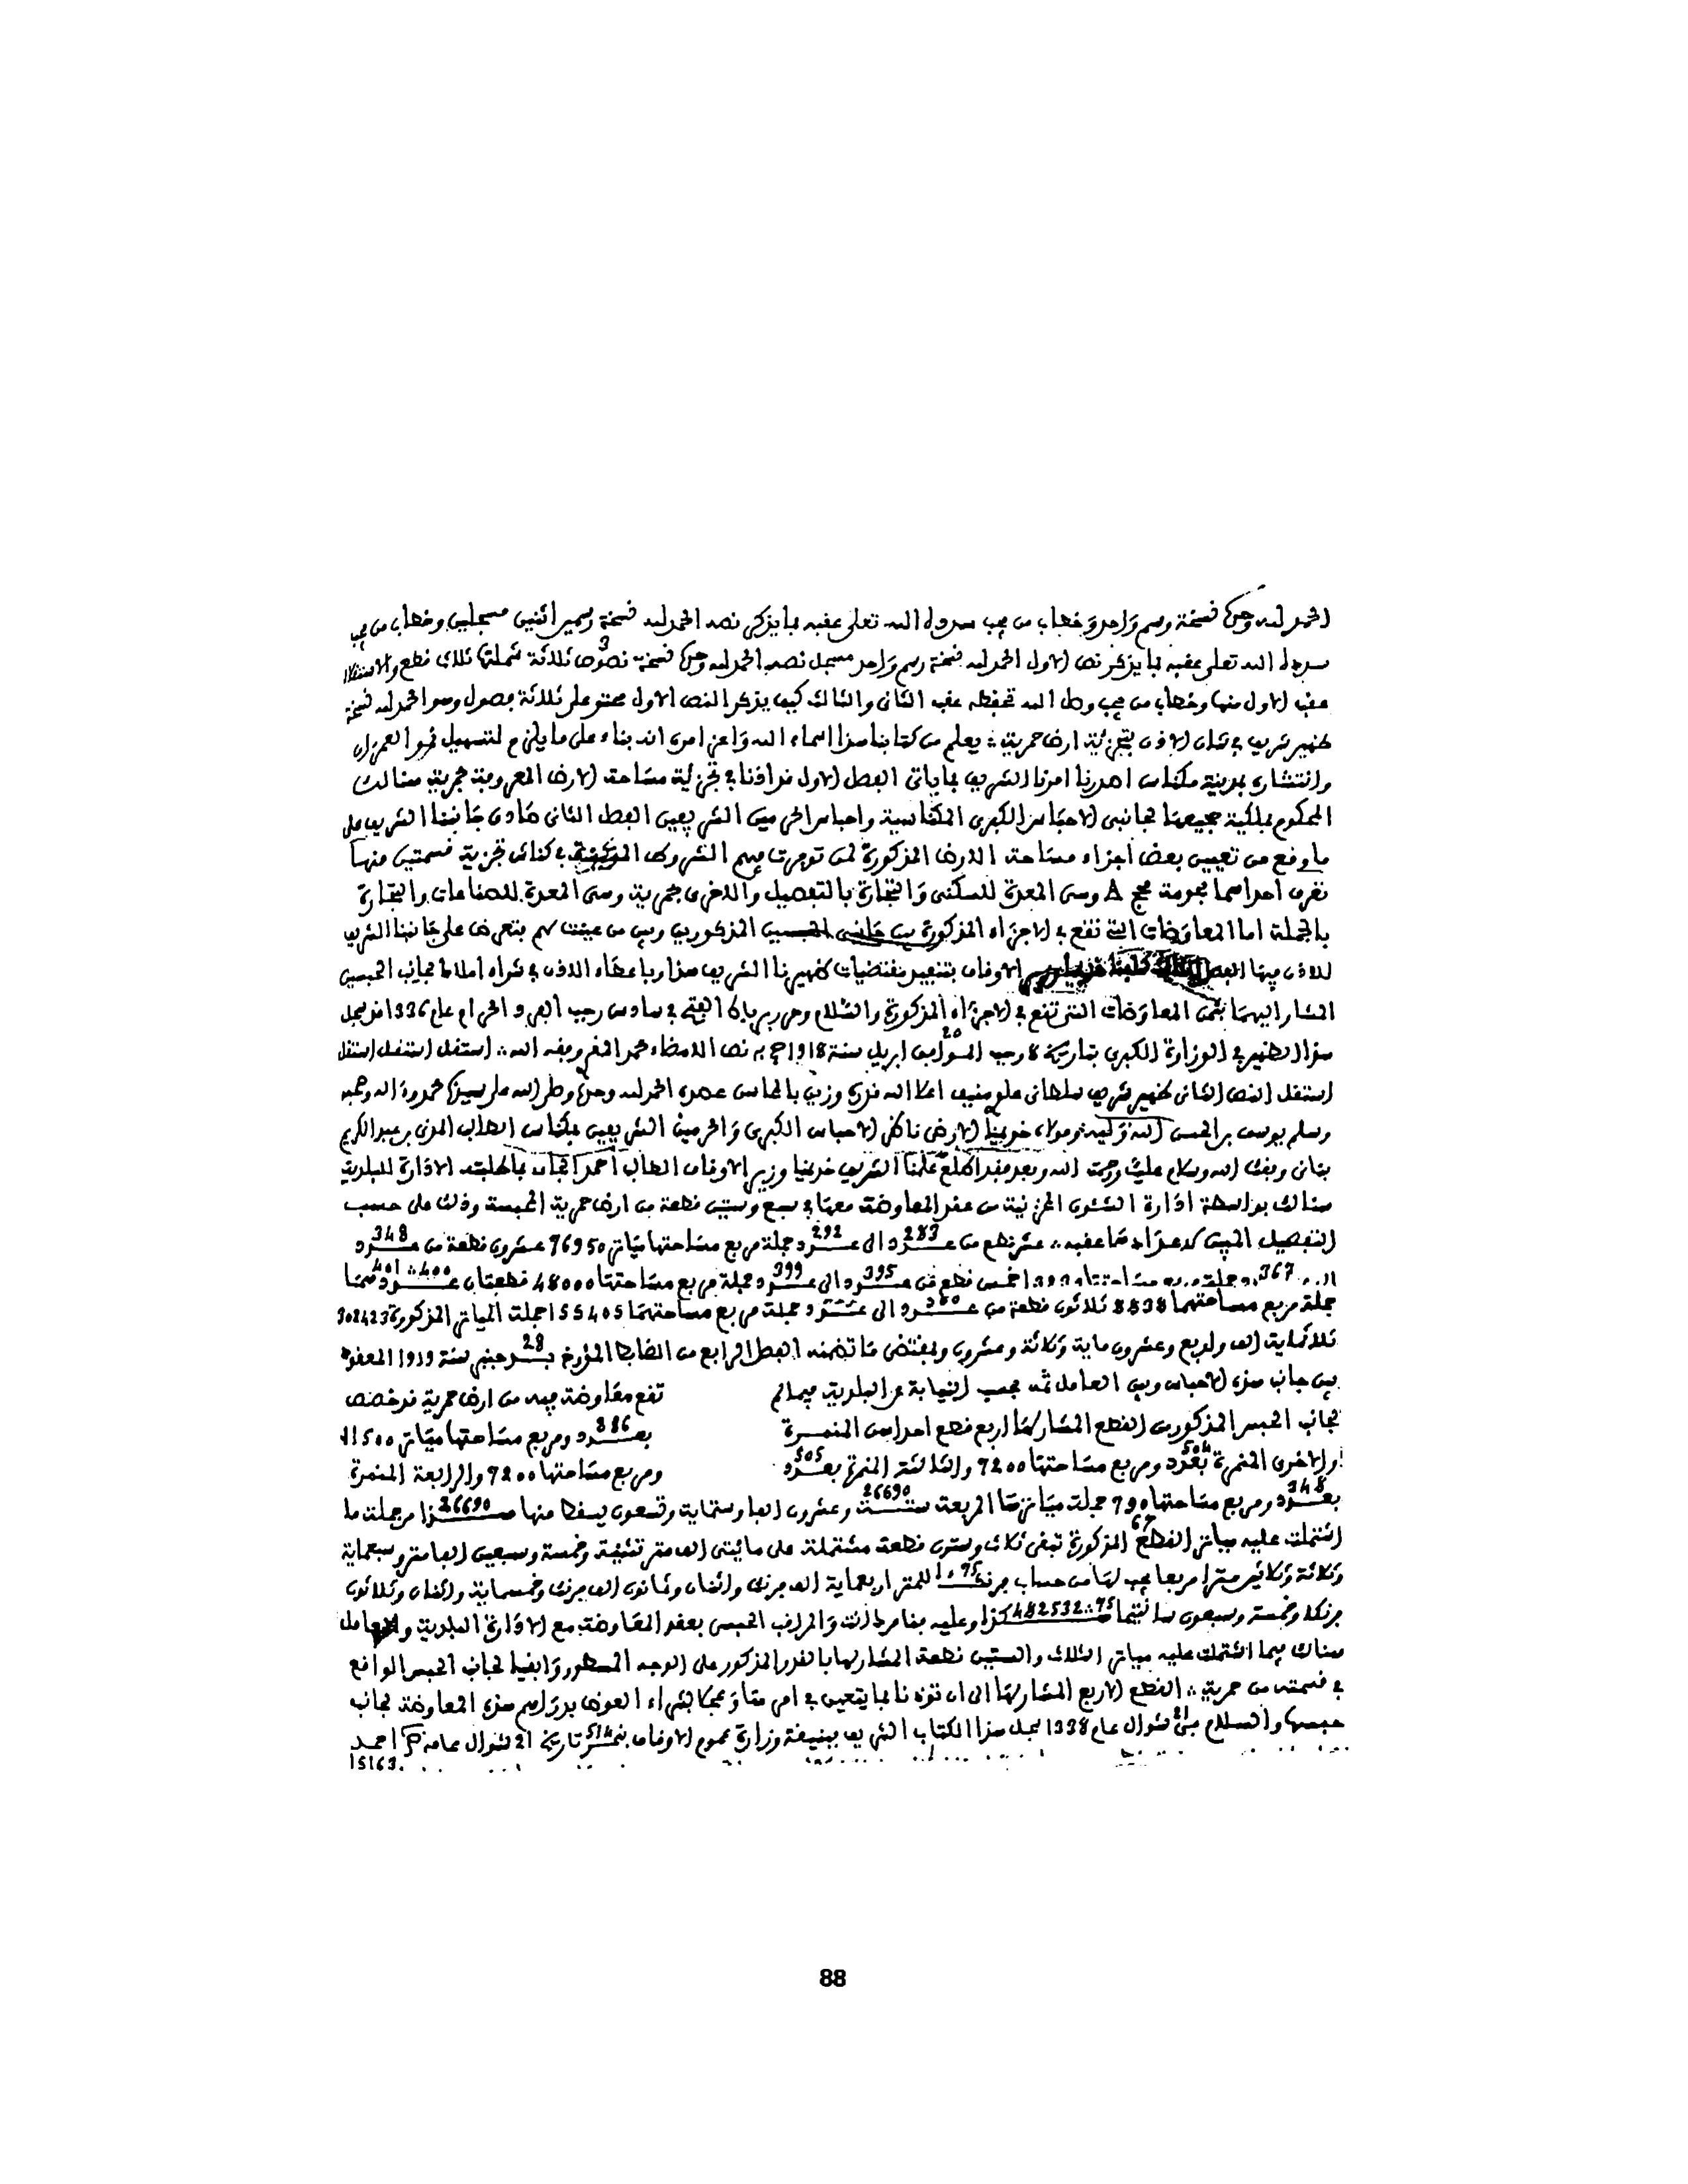 الحمد لله وحده نسخة رسم واحد وخطاب من يجب سدده الله تعالى عقبه بما يذكر نصه الحمد لله نسخة رسمين اثنين مسجلين وخطاب من يجب
سدده الله تعلى عقبه بما يذكر نص الاول الحمد لله نسخة رسم واحد مسجل نصه الحمد لله وحده نسخة نصوص ثلاثة 3 شملتها ثلاث قطع والاستقلال
عقب الاول منها وخطاب من يجب وصل الله تحفظه عقب الثاني والثالث كيف يذكر النص الاول محتو على ثلاثة فصول وهو الحمد لله نسخة
ظهير شريف في شان الاذن بتجزئة ارض حمرية يعلم من كتابنا هذا اسماه الله واعز امره انه بناء على ما يلزم لتسهيل نمو العمران
وانتشاره بمدينة مكناس اصدرنا امرنا الشريف بما ياتي الفصل الاول قد اذنا في تجزئة مساحة الارض المعروفة بحمرية هنالك
المحكوم بملكية جميعها لجانبي الاحباس الكبرى المكناسية واحباس الحرمين الشريفين الفصل الثاني صادق جانبنا الشريف على
ما وقع من تعيين بعض اجزاء مساحة الارض المذكورة لمن توفرت فيهم الشروط المبينة في كناش تجزية قسمتين منها
تعرف احداهما بحومة محج A وهى المعدة للسكنى والتجارة بالتفصيل والاخرى بحمرية وهى المعدة للصناعات والتجارة
بالجملة اما المعاوضات التي تقع في الاجزاء المذكورة بين جانبي الحبسين المذكورين وبين من عينت لهم فتعرض على جانبنا الشريف
للاذن فيها الفصل الاوقاف بتنفيذ مقتضيات ظهيرنا الشريف هذا وباعطاء الاذن في شراء املاك لجانب الحبسين
المشار اليهما بثمن المعاوضات التي تقع في الاجزاء المذكورة والسلام وحرر برباط الفتح في سادس رجب الفرد الحرام عام 1336 قد سجل
هذا الظهير في الوزارة الكبرى بتاريخ 8 رجب الموافق 20 ابريل سنة 1918 به نص الامضاء محمد المقري وفقه الله استقل استقل استقل
استقل النص الثاني ظهير شريف سلطاني على منيف اعلا الله قدره وزين بالمحاسن عصره الحمد لله وحده وصلى الله على سيدنا محمد وءاله وصحبه
وسلم يوسف بن الحسن الله وليه ومولاه خديمنا الارضى ناظر الاحباس الكبرى والحرمين الشريفين بمكناس الطالب المدني بن عبد الكريم
بناني وفقك الله وسلام عليك ورحمت الله وبعد فقد اطلع علمنا الشريف خديمنا وزير الاوقاف الطالب احمد الجاي بما طلبته الادارة البلدية
هنالك بواسطة ادارة الشئون المخزنية من عقد المعاوضة معها في سبع وستين قطعة من ارض حمرية المحبسة وذلك على حسب
التفصيل المبين عشر قطع من عدد 283 الى عدد 292 جملة مربع مساحتها مياتر 76950 عشرون قطعة من عدد 348
الى 367 جملة مربع مساحتها خمس قطع من عدد 395 الى عدد 399 جملة مربع مساحتها 48000 قطعتان عدد 400 401
جملة مربع مساحتهما 8838 ثلاثون قطعة من عدد الى عدد جملة مربع مساحتهما 155405 جملة المياتر المذكورة 302423
ثلاثماية الف واربع وعشرون ماية وثلاثة وعشرون وبمقتضى ما تضمنه الفصل الرابع من الضابط المؤرخ بـ 28 سنة 1919 المعقود
بين جانب هذه الاحباس وبين العامل ثمه بحسب النيابة عن البلدية فيما لم تقع معاوضة فيه من ارض حمرية قد خصص
لجانب الحبس المذكورين القطع المشار لها اربع قطع احداهن المنمرة بعدد 386 ومربع مساحتها مياتر 11500
والاخرى المنمرة بعدد 504 ومربع مساحتها 7200 والثالثة المنمرة بعدد 505 ومربع مساحتها 7200 والرابعة المنمرة
بعدد 348 ومربع مساحتها 790 جملة مياترها المربعة ستة وعشرون الفا وستماية وتسعون 26690 يسقط منها 26690 من جملة ما
اشتملت عليه مياتر القطع 67 المذكورة تبقى ثلاث وستون قطعة مشتملة على مائتي الف متر وخمسة وسبعين الفا متر وسبعماية
وثلاثة وثلاثين مترا مربعا يجب لها من حساب فرنك 1 75 للمتر اربعماية الف فرنك واثنان وثمانون الف فرنك وخمسماية واثنان وثلاثون
فرنكا وخمسة وسبعون سانتيما 482532 75 كذا وعليه فنامرك انت والمراقب الحبسي بعقد المعاوضة مع الادارة البلدية والعامل
هنالك فيما اشتملت عليه مياتر الثلاث والستين قطعة المشار لها بالقدر المذكور على الوجه المسطور وابقيا لجانب الحبس الواقع
في قسمته من حمرية القطع الاربع المشار لها الى ان توذنا بما يتعين في امرها وعجلا بشراء العوض بدراهم هذه المعاوضة لجانب
حبسها والسلام في 21 شوال عام 1338 سجل هذا الكتاب الشريف ببنيقة وزارة عموم الاوقاف بنمرة 514 تاريخ 21 شوال عامه احمد
15163
88